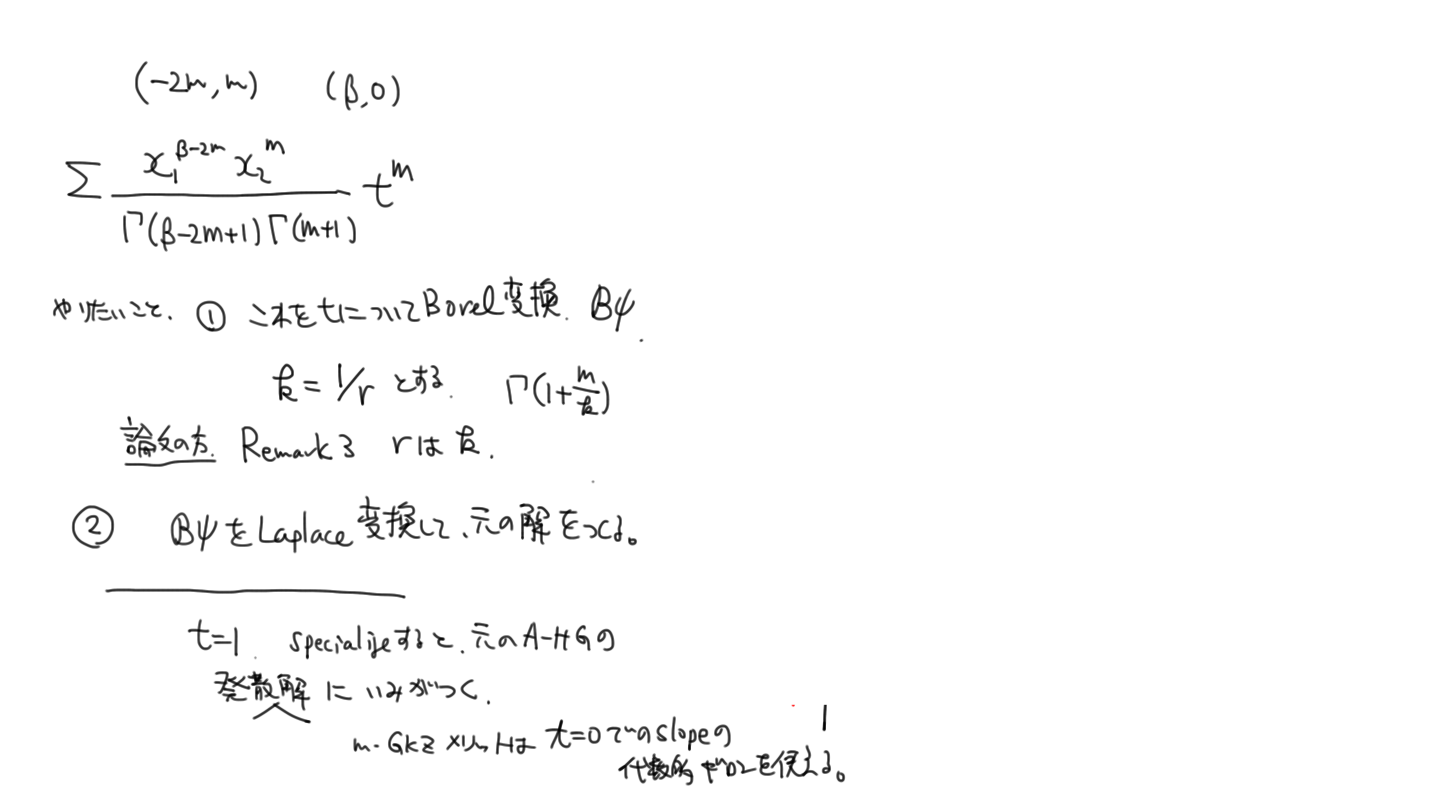 (-2m, m) (β, 0)
Σ x₁^{β-2m} x₂^m / Γ(β-2m+1)Γ(m+1) t^m
やりたいこと. ① これをtについてBorel変換. Bψ.
k = 1/r とする. Γ(1+m/k)
論文の方. Remark 3 rは k.
② BψをLaplace変換して、元の解をつくる。
t=1. specializeすると、元のA-HGの
発散解にいみがつく.
m-GKZ メリットは t=0でのslopeの 1
代数的 を使える。